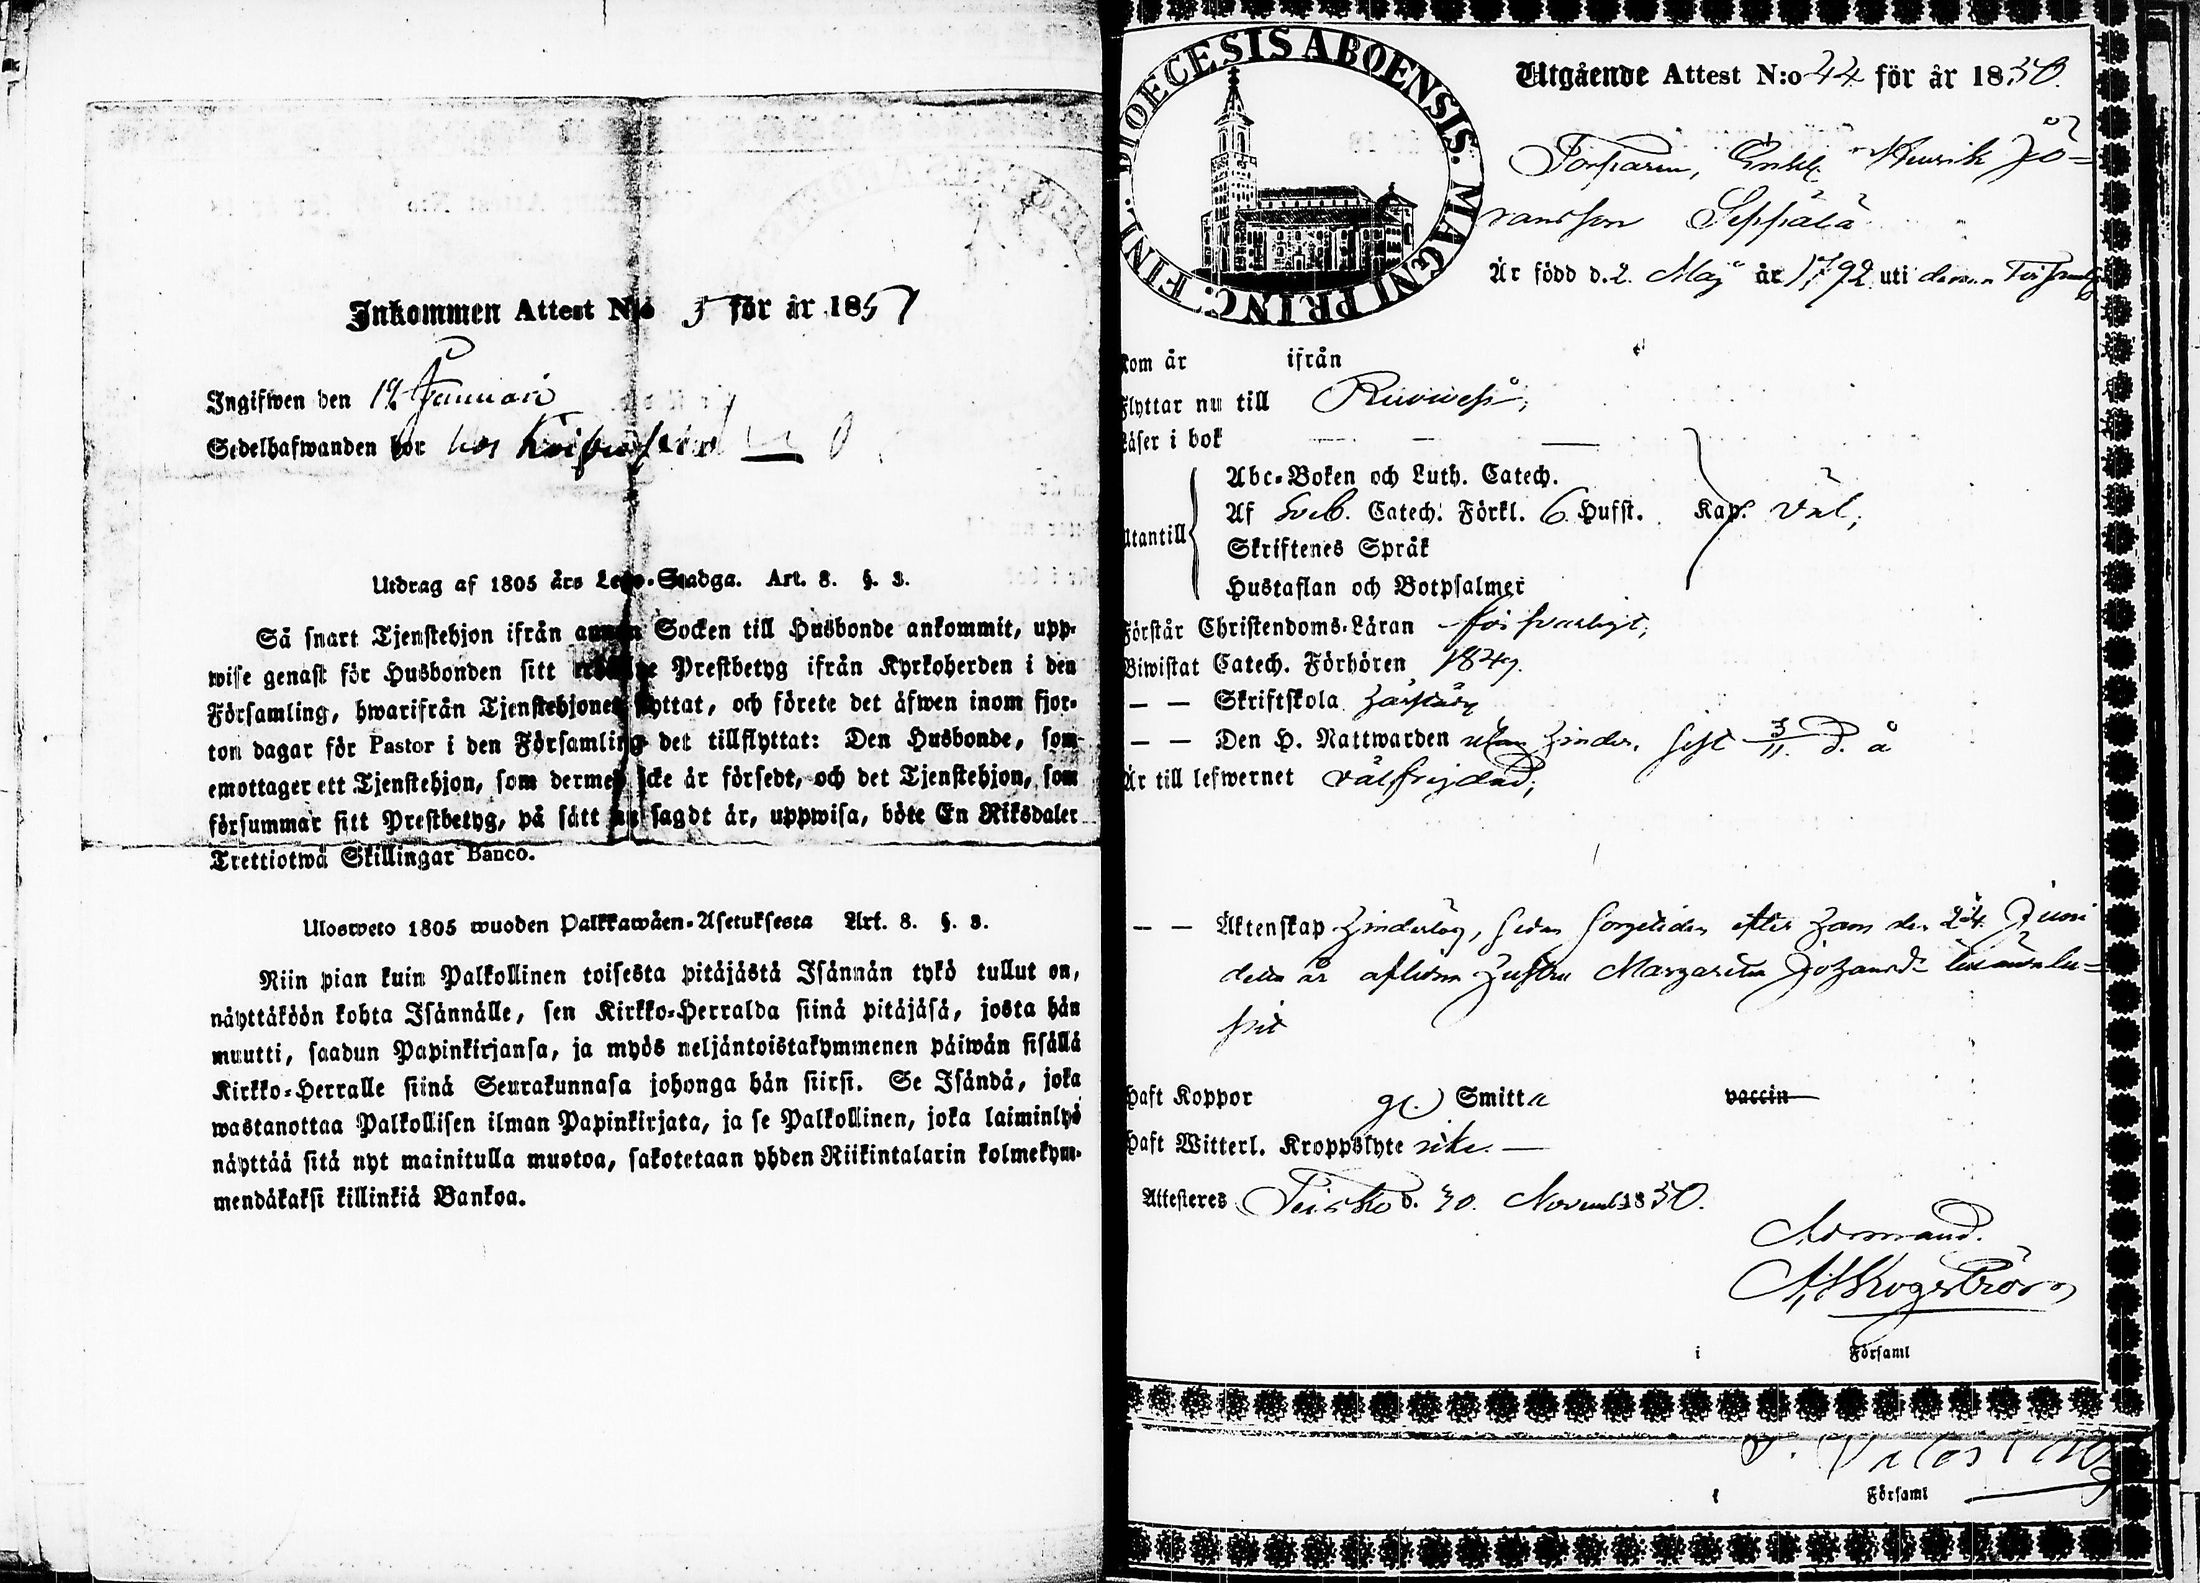 Inkommen Attest N:o 5 för år 1851
Ingifwen den 19 Januari
Sedelhafwanden bor hos
Utdrag af 1805 års Lego-Stadga. Art. 8. §. 3.
Så snart Tjenstehjon ifrån annan Socken till Husbonde ankommit, upp-
wise genast för Husbonden sitt Prestbetyg ifrån Kyrkoherden i den
Församling, hwarifrån Tjenstehjonet flyttat, och förete det äfwen inom fjor-
ton dagar för Pastor i den Församling det tillflyttat: Den Husbonde, som
emottager ett Tjenstehjon, som dermed icke är försedt, och det Tjenstehjon, som
försummar sitt Prestbetyg, på sätt nu sagdt är, uppwisa, böte En Riksdaler
Trettiotwå Skillingar Banco.
Ulosweto 1805 wuoden Palkkawäen-Asetuksesta Art. 8. §. 3.
Niin pian kuin Palkollinen toisesta pitäjästä Isännän tykö tullut on,
näyttäköön kohta Isännälle, sen Kirkko-Herralda siinä pitäjäsä, josta hän
muutti, saadun Papinkirjansa, ja myös neljäntoistakymmenen päiwän sisällä
Kirkko-Herralle siinä Seurakunnasa johonga hän siirsi. Se Isändä, joka
wastanottaa Palkollisen ilman Papinkirjata, ja se Palkollinen, joka laiminlyö
näyttää sitä nyt mainitulla muotoa, sakotetaan yhden Riikintalarin kolmekym-
mendäkaksi killinkiä Bankoa.
DIOECESIS ABOENSIS. MAGNI PRINC. FINL.
Utgående Attest N:o 44 för år 1850.
Torparen, Enkl. Henrik Jö-
ransson Seppälä
Är född d. 2. Maj år 1792 uti denna Församling
kom år ifrån
Flyttar nu till Ruowesi,
Läser i bok
Utantill
Abc-Boken och Luth. Catech.
Af Sveb. Catech. Förkl. 6. Hufst. Kap. väl;
Skriftenes Språk
Hustaflan och Botpsalmer
Förstår Christendoms-Läran försvarligt;
Biwistat Catech. Förhören 1849.
— — Skriftskola härstädes
— — Den H. Nattwarden utan hinder, sist 3/11 d. å
Är till lefwernet välfrejdad;
— — Äktenskap hinderlös, sedan sorgetiden efter hans den 24 Juni
detta år aflidna hustru Margaretha Johansd:r
Haft Koppor ja Smitta vaccin
Haft Witterl. Kroppslyte icke. —
Attesteras Teisko d. 30. Novemb. 1850.
A. Skogström
i Församl
i Församl